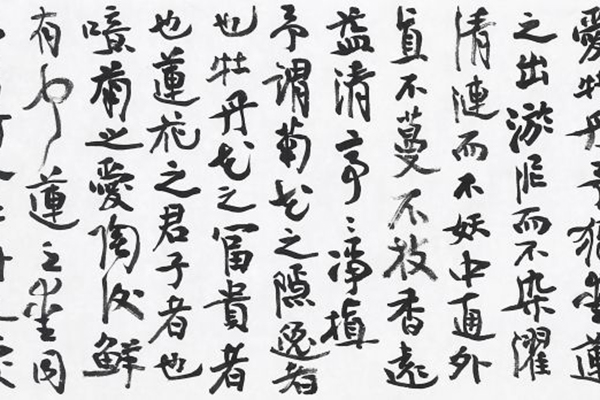 愛牡丹予獨愛蓮
之出淤泥而不染濯
清漣而不妖中通外
直不蔓不枝香遠
益清亭〻淨植
予謂菊花之隱逸者
也牡丹花之富貴者
也蓮花之君子者也
噫菊之愛陶後鮮
有聞蓮之愛同